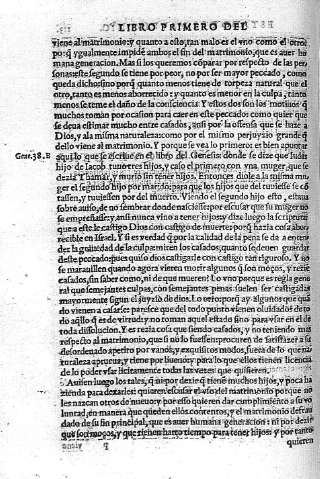 LIBRO PRIMERO DEL
viene al matrimonio: y quanto a esto, tan malo es el vno como el otro
porq̃ ygualmente impide ambos el fin del matrimonio, que es auer hu
mana generacion. Mas si los queremos cõparar por respecto de las per
sonas este segundo se tiene por peor, no por ser mayor peccado, como
queda dicho sino porq̃ quanto menos tiene de torpeza natural que el
otro, tanto es menos aborrecido: y quanto es menor en la culpa, tanto
menos se teme el daño de la consciencia: Y estos dos son los motiuos q̃
muchos toman por ocasion para caer en este peccado como quier que
se deua estimar mucho entre casados, assi por la offensa que se haze a
Dios, y a la misma naturaleza: como por el mismo perjuyzio grande q̃
dello viene al matrimonio. Y porque se vea lo primero es bien apuntar
Gene.38. B aqui lo que se escriue en el libro del Genesis: donde se dize que Iudas
hijo de Iacob tuuo tres hijos, y caso el primero con vna muger, que se
dezia Thamar, y murio sin tener hijos. Entonces diole a la misma mu
ger el segundo hijo por marido: para que los hijos que del tuuiesse se cõ
tassen, y tuuiessen por del muerto. Viendo el segundo hijo esto, estaua
sobre auiso, de no sembrar donde nasciesse por escusar que su muger no
se empreñasse: y assi nunca vino a tener hijos: y dize luego la scriptura
que a este le castigo Dios con castigo de muerte: porq̃ hazia cosa abor
recible en Israel. Y si es verdad q̃ por la calidad de la pena se da a enten
der la grauedad de la culpa: miren los casados, quanto se deuen guardar
deste peccado: pues quiso dios castigarle con castigo tan riguroso. Y no
se marauillen quando agora vieren morir algunos q̃ son moços, y rezie
casados, sin saber como, ni de que murieron: Lo vno porque es regla gene
ral que semejantes culpas, con semejantes penas suelen ser castigadas
mayormente segun el juyzio de dios. Lo otro: porq̃ ay algunos que quã
do vienen a casarse: parece que del todo punto vienen oluidados de to
do aq̃llo q̃ es de virtud: y no toman aquel estado sino para vsar en el de
toda dissolucion. Y es rezia cosa que siendo casados, y no teniendo mas
respecto al matrimonio, que si no lo fuessen: procuren de satisfazer a su
desordenado apetito por vanos, y exquisitos modos, fuera de lo que na
turaleza aprueua, y tiene por bueno: y para lo que ellos tienen licencia
de lo poder vsar licitamente todas las vezes que quisieren.
Auisen luego los tales, q̃ ni por dezir q̃ tiene muchos hijos, y poca ha
zienda para dexarles: quieran escusar el vso del matrimonio porque no
les nazcan otros de nueuo: y por esso quieren dar cumplimiento a su vo
luntad, en manera que queden ellos contentos, y el matrimonio defrau
dado de su fin principal, que es auer humana generacion: ni por dezir
que son moços, y que tienen harto tiempo para tener hijos: y por tanto
quieren